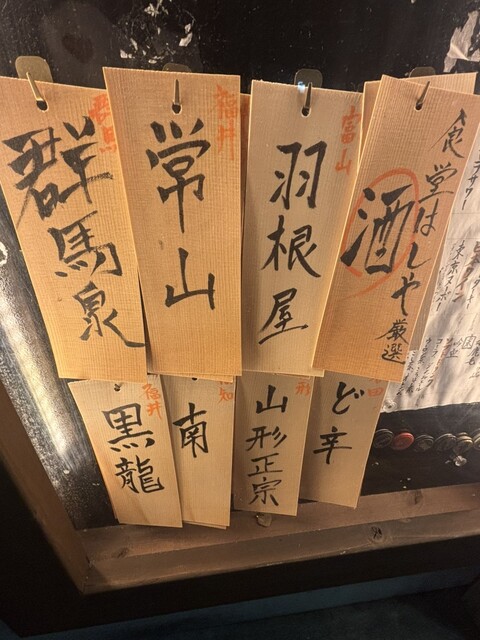 食堂はしや
酒
厳選
富山
羽根屋
福井
常山
群馬
群馬泉
田
ど辛
形
山形正宗
知
南
福井
黒龍